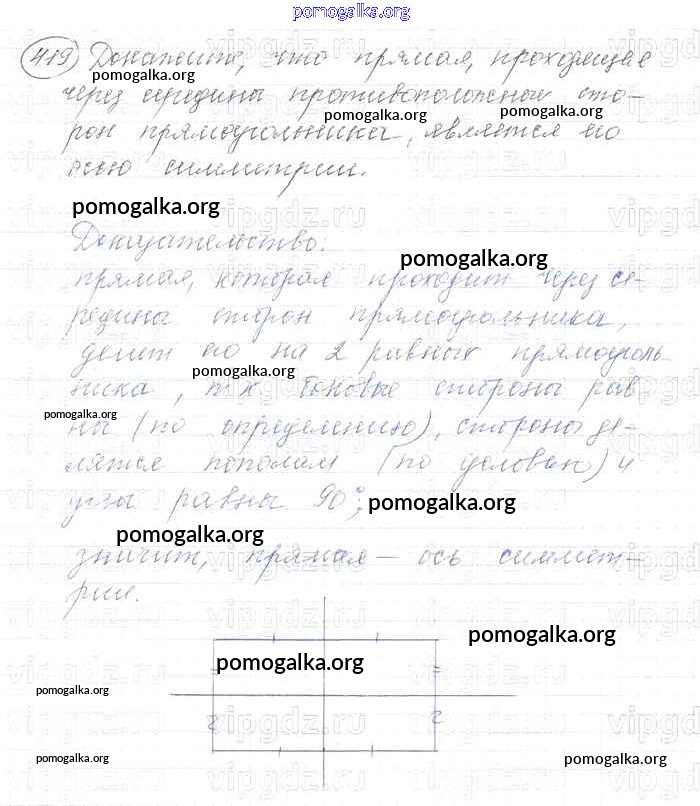 pomogalka.org
419 Докажите, что прямая, проходящая
pomogalka.org
через середины противоположных сто-
pomogalka.org
pomogalka.org
рон прямоугольника, является его
осью симметрии.
pomogalka.org
Доказательство:
pomogalka.org
прямая, которая проходит через се-
редины сторон прямоугольника,
делит его на 2 равных прямоуголь-
pomogalka.org
ника, т.к. боковые стороны рав
pomogalka.org
ны (по определению), стороны де-
лятся пополам (по условию) и
углы равны 90°;
pomogalka.org
pomogalka.org
значит, прямая – ось симмет-
рии.
pomogalka.org
pomogalka.org
pomogalka.org
vipgdz.ru
pomogalka.org
pomogalka.org